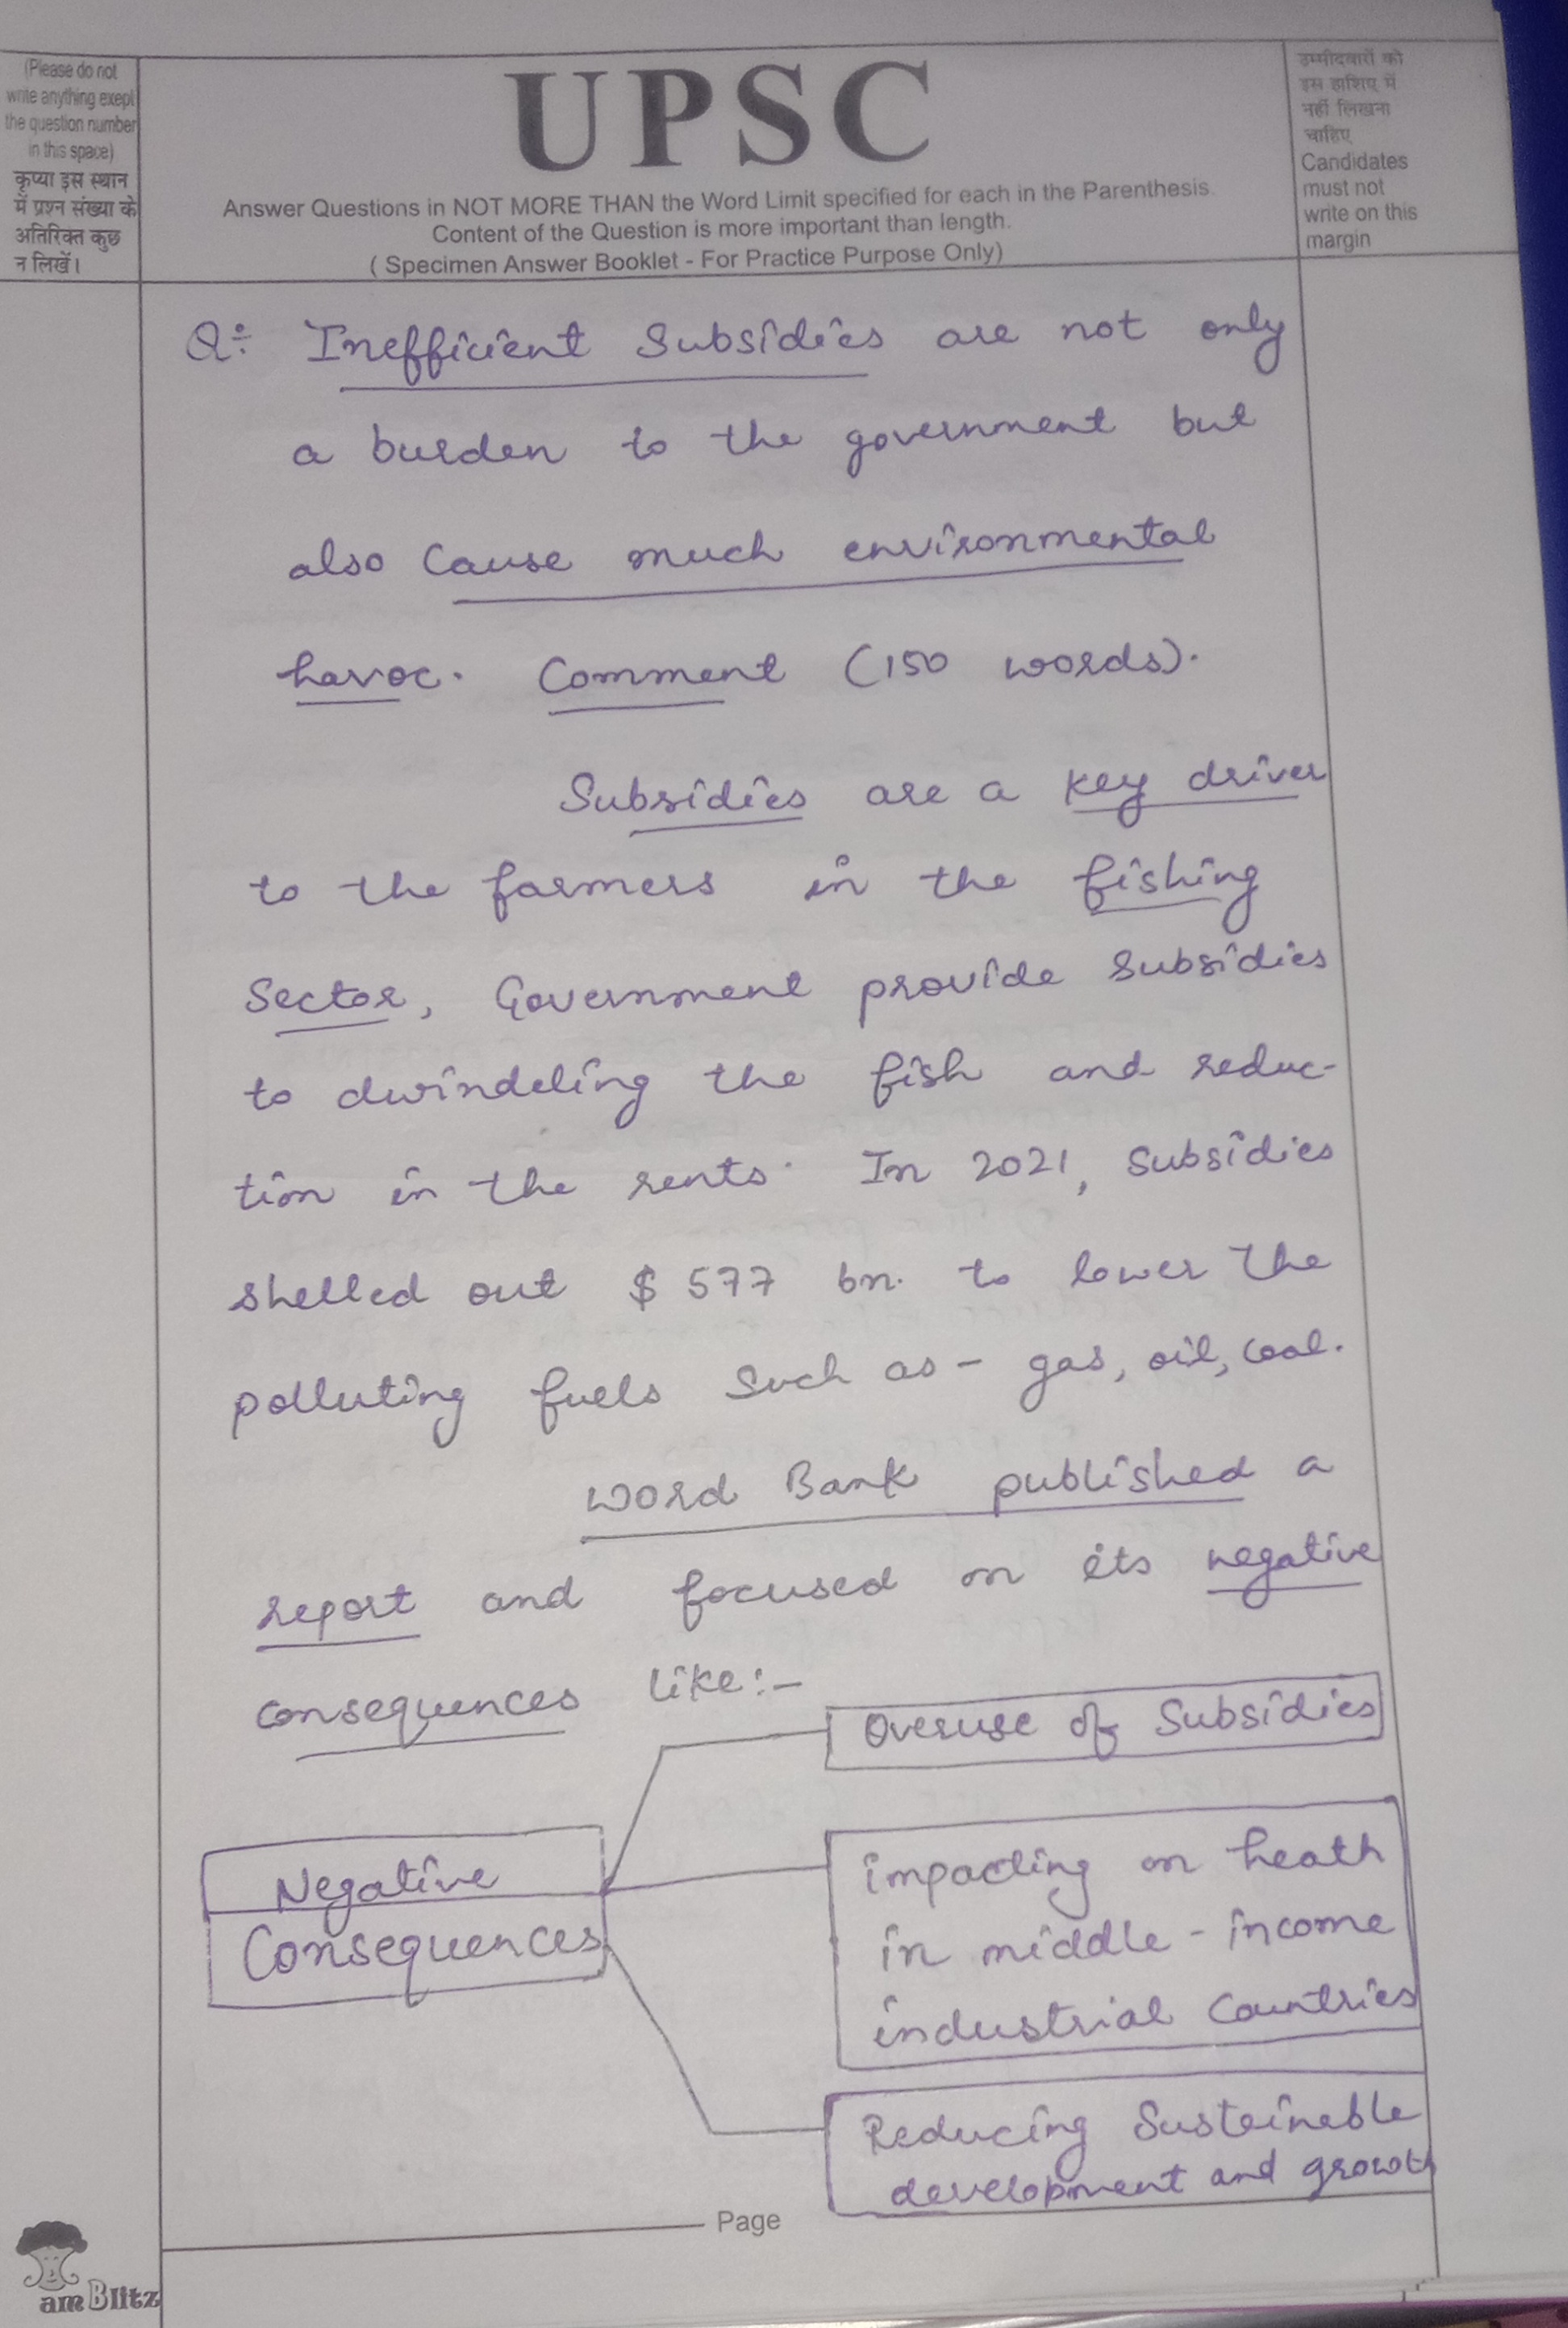 (Please do not
write anything exept
the question number
in this space)
कृप्या इस स्थान
में प्रश्न संख्या के
अतिरिक्त कुछ
न लिखें।
UPSC
Answer Questions in NOT MORE THAN the Word Limit specified for each in the Parenthesis.
Content of the Question is more important than length.
( Specimen Answer Booklet - For Practice Purpose Only)
उम्मीदवारों को
इस हाशिए में
नहीं लिखना
चाहिए
Candidates
must not
write on this
margin
Q÷ Inefficient Subsidies are not only
a burden to the government but
also Cause much environmental
havoc. Comment (150 words).
Subsidies are a key driver
to the farmers in the fishing
Sector, Government provide subsidies
to dwindeling the fish and reduc-
tion in the rents. In 2021, subsidies
shelled out $ 577 bn. to lower the
polluting fuels such as - gas, oil, coal.
Word Bank published a
report and focused on its negative
consequences like:-
Overuse of Subsidies
Negative
Consequences
impacting on heath
in middle - income
industrial Countries
Reducing Susteineble
development and growth
Page
am Blitz